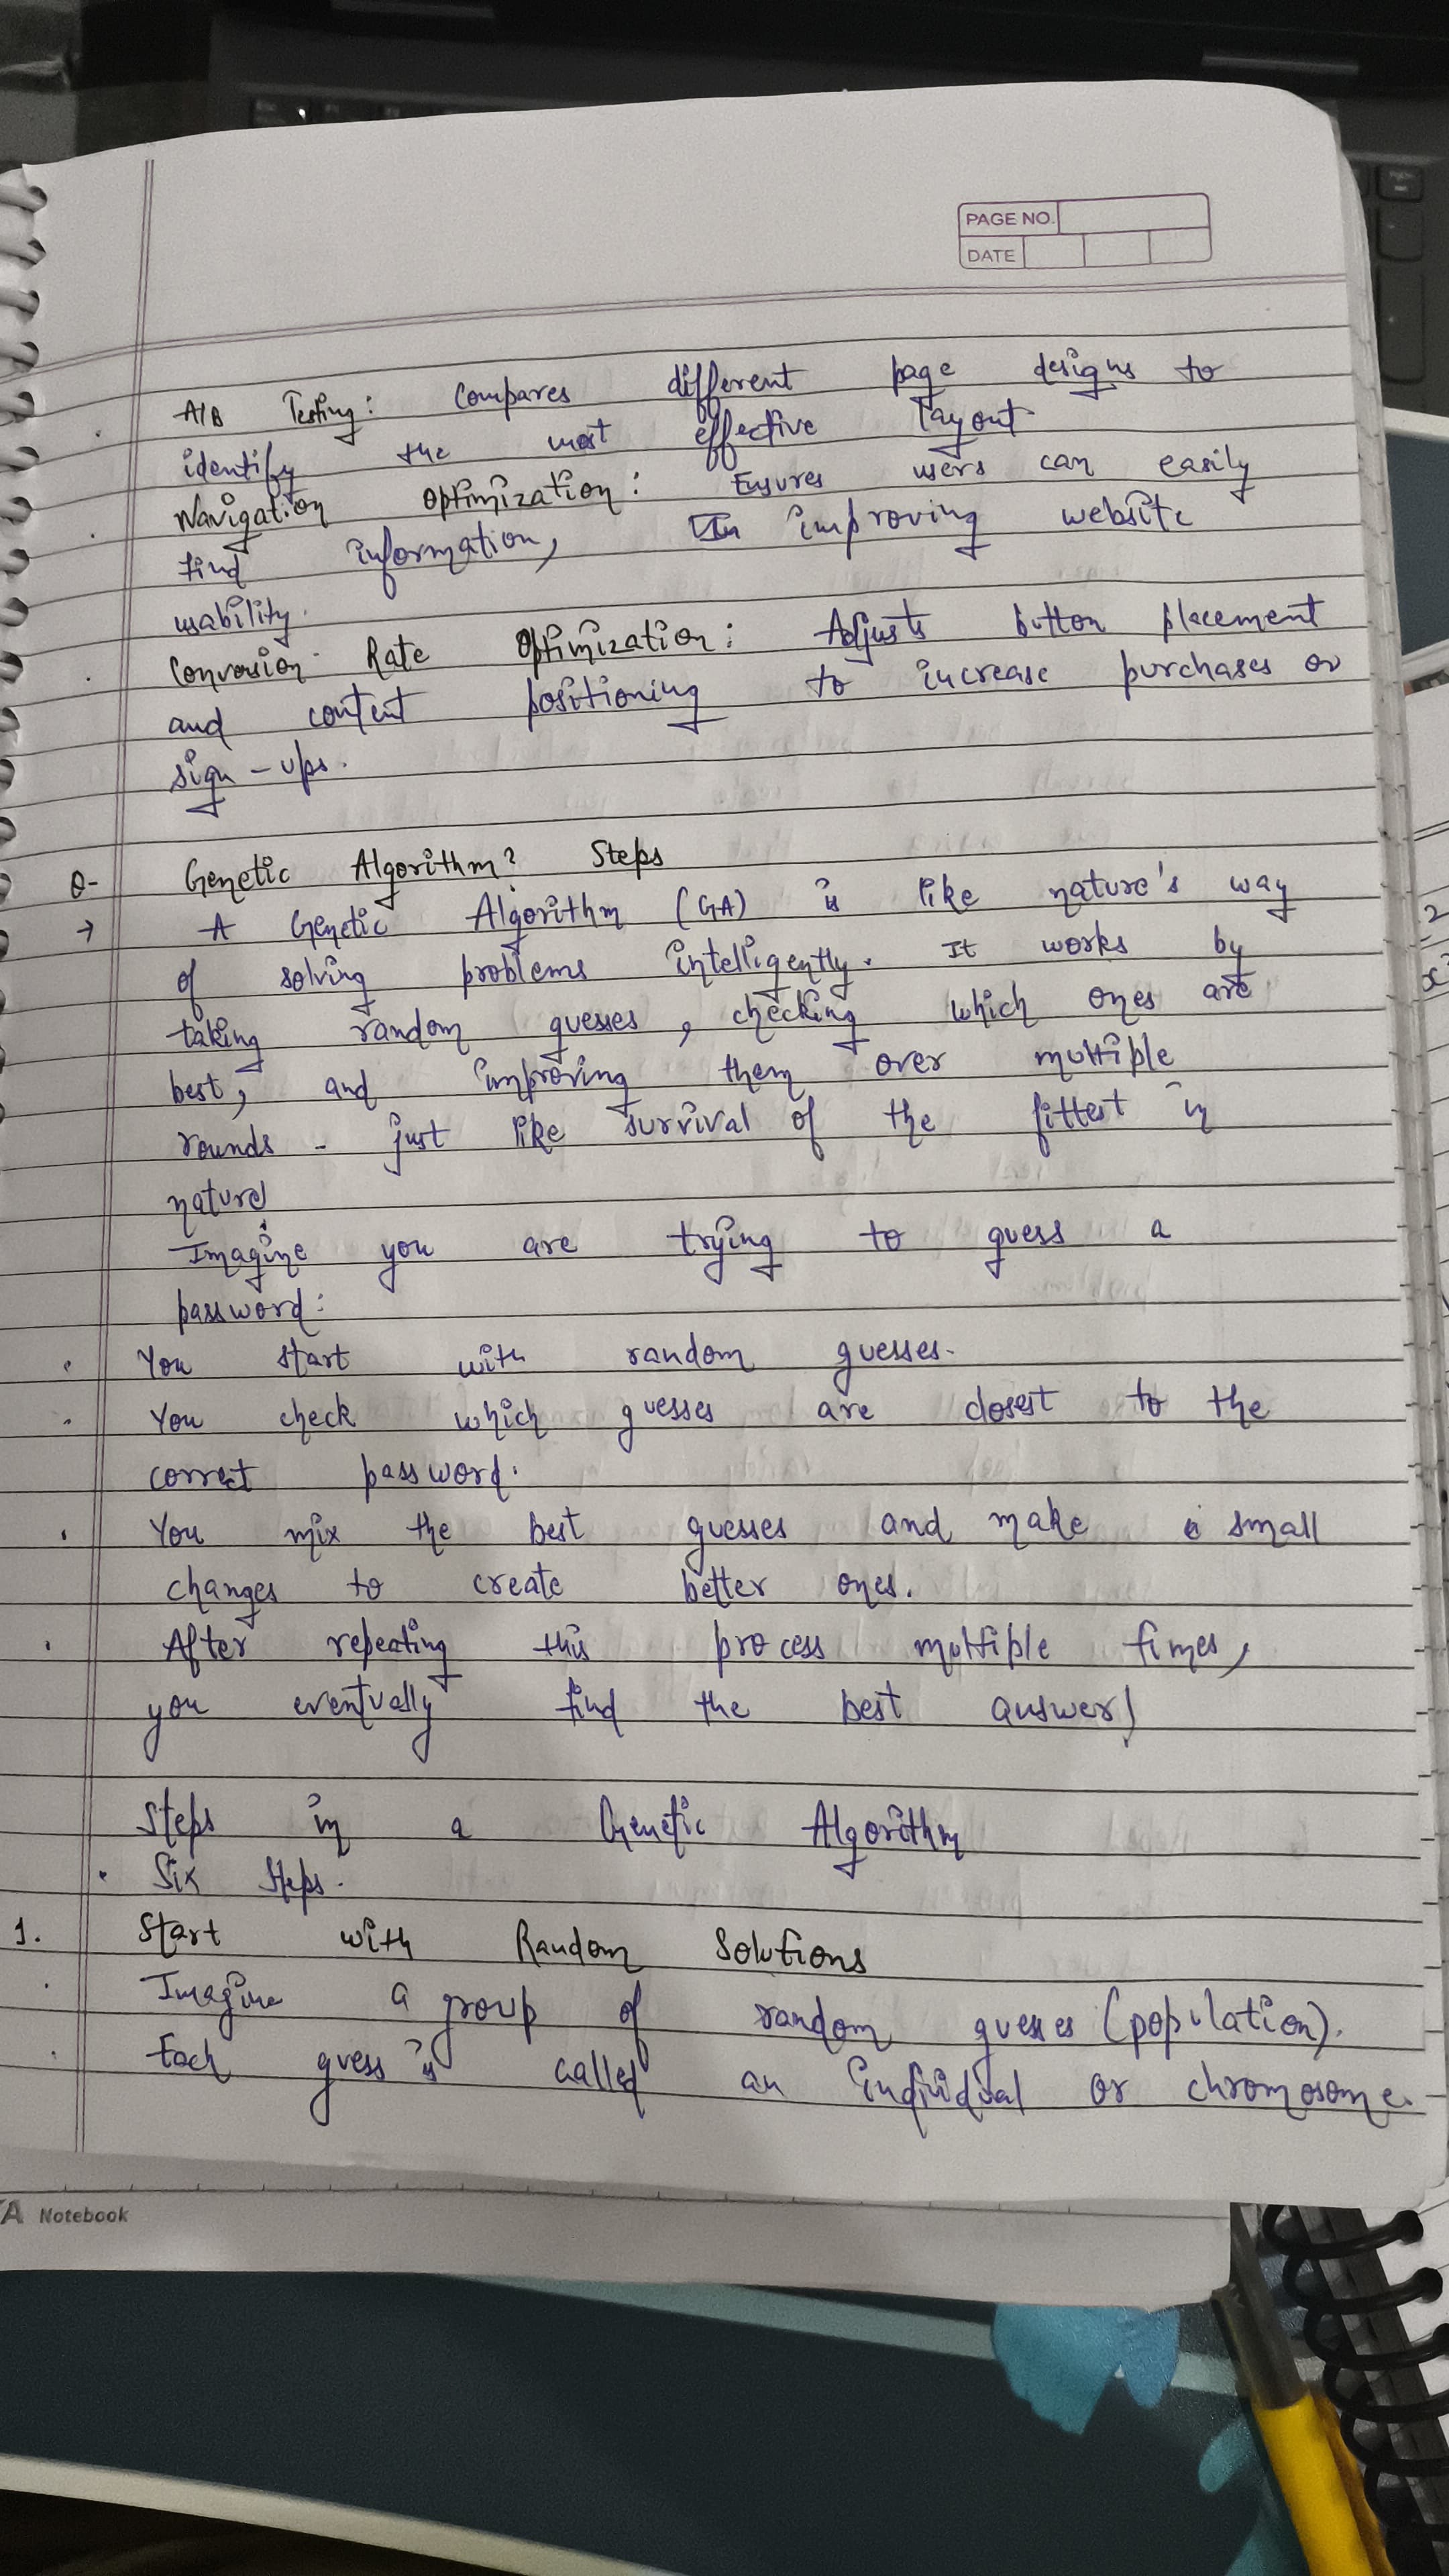 PAGE NO.
DATE
A/B Testing: Compares different page designs to
identify the most effective layout
Navigation Optimization: Ensures users can easily
find information, improving website
usability.
Conversion Rate Optimization: Adjusts button placement
and content positioning to increase purchases or
sign-ups.
Q- Genetic Algorithm? Steps
→ A Genetic Algorithm (GA) is like nature's way
of solving problems intelligently. It works by
taking random guesses, checking which ones are
best, and improving them over multiple
rounds - just like survival of the fittest in
nature
Imagine you are trying to guess a
password:
. You start with random guesses.
. You check which guesses are closest to the
correct password.
. You mix the best guesses and make small
changes to create better ones.
. After repeating this process multiple times,
you eventually find the best answer!
Steps in a Genetic Algorithm
. Six Steps.
1. Start with Random Solutions
. Imagine a group of random guesses (population).
. Each guess is called an individual or chromosome.
Notebook